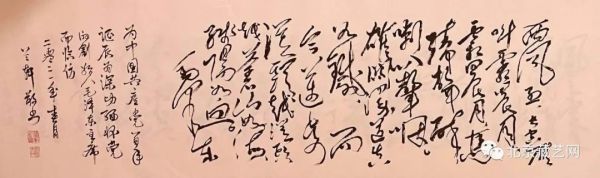 西风烈长空雁
叫霜晨月
霜晨月马
蹄声碎
喇叭声咽
雄关漫道真
如铁而
今迈步
从头越从头
越苍山如海
残阳如血
毛泽东
为中国共产党百年
诞辰为深切缅怀党
的创始人毛泽东主席
而临仿
二零二一年春月
敬书
北京藏艺网